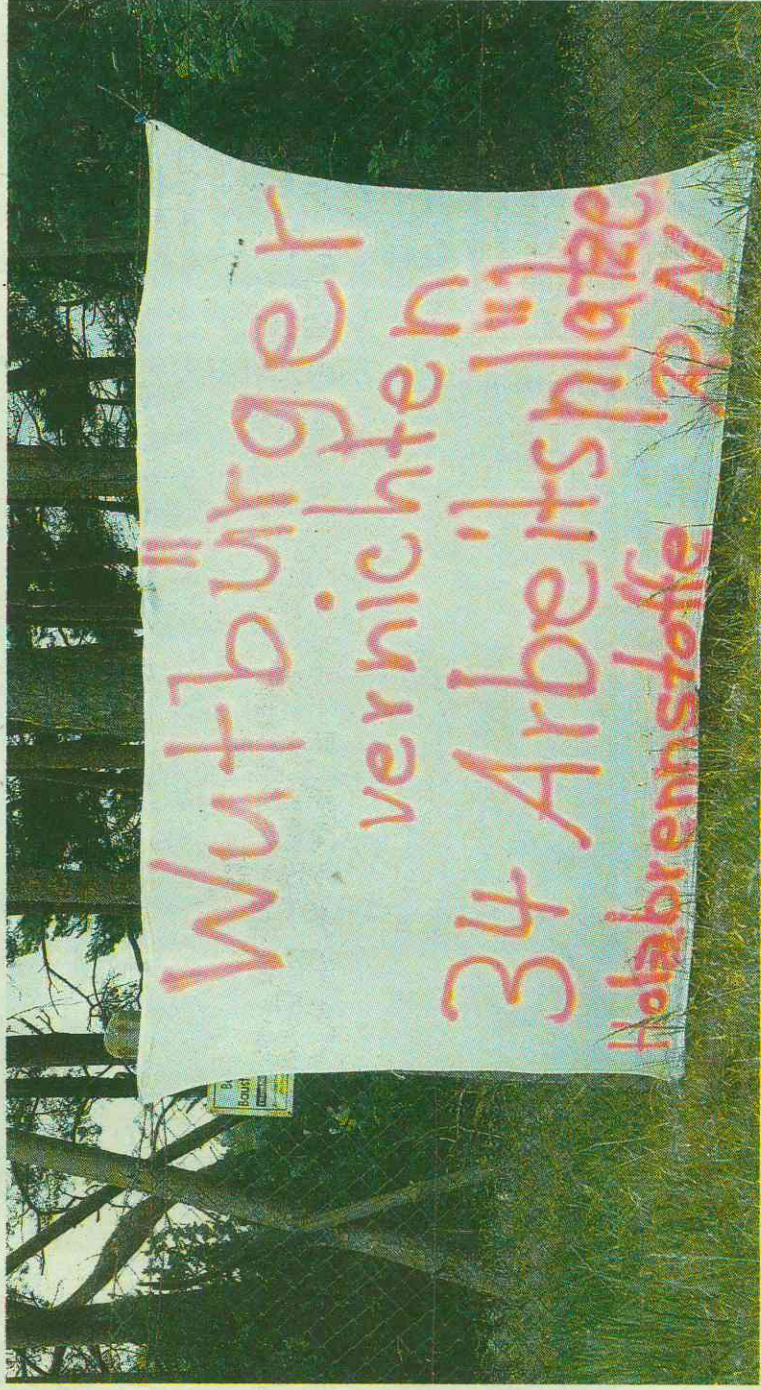 Wutbürger
vernichten
34 Arbeitsplätze
Holzbrennstoffe RN